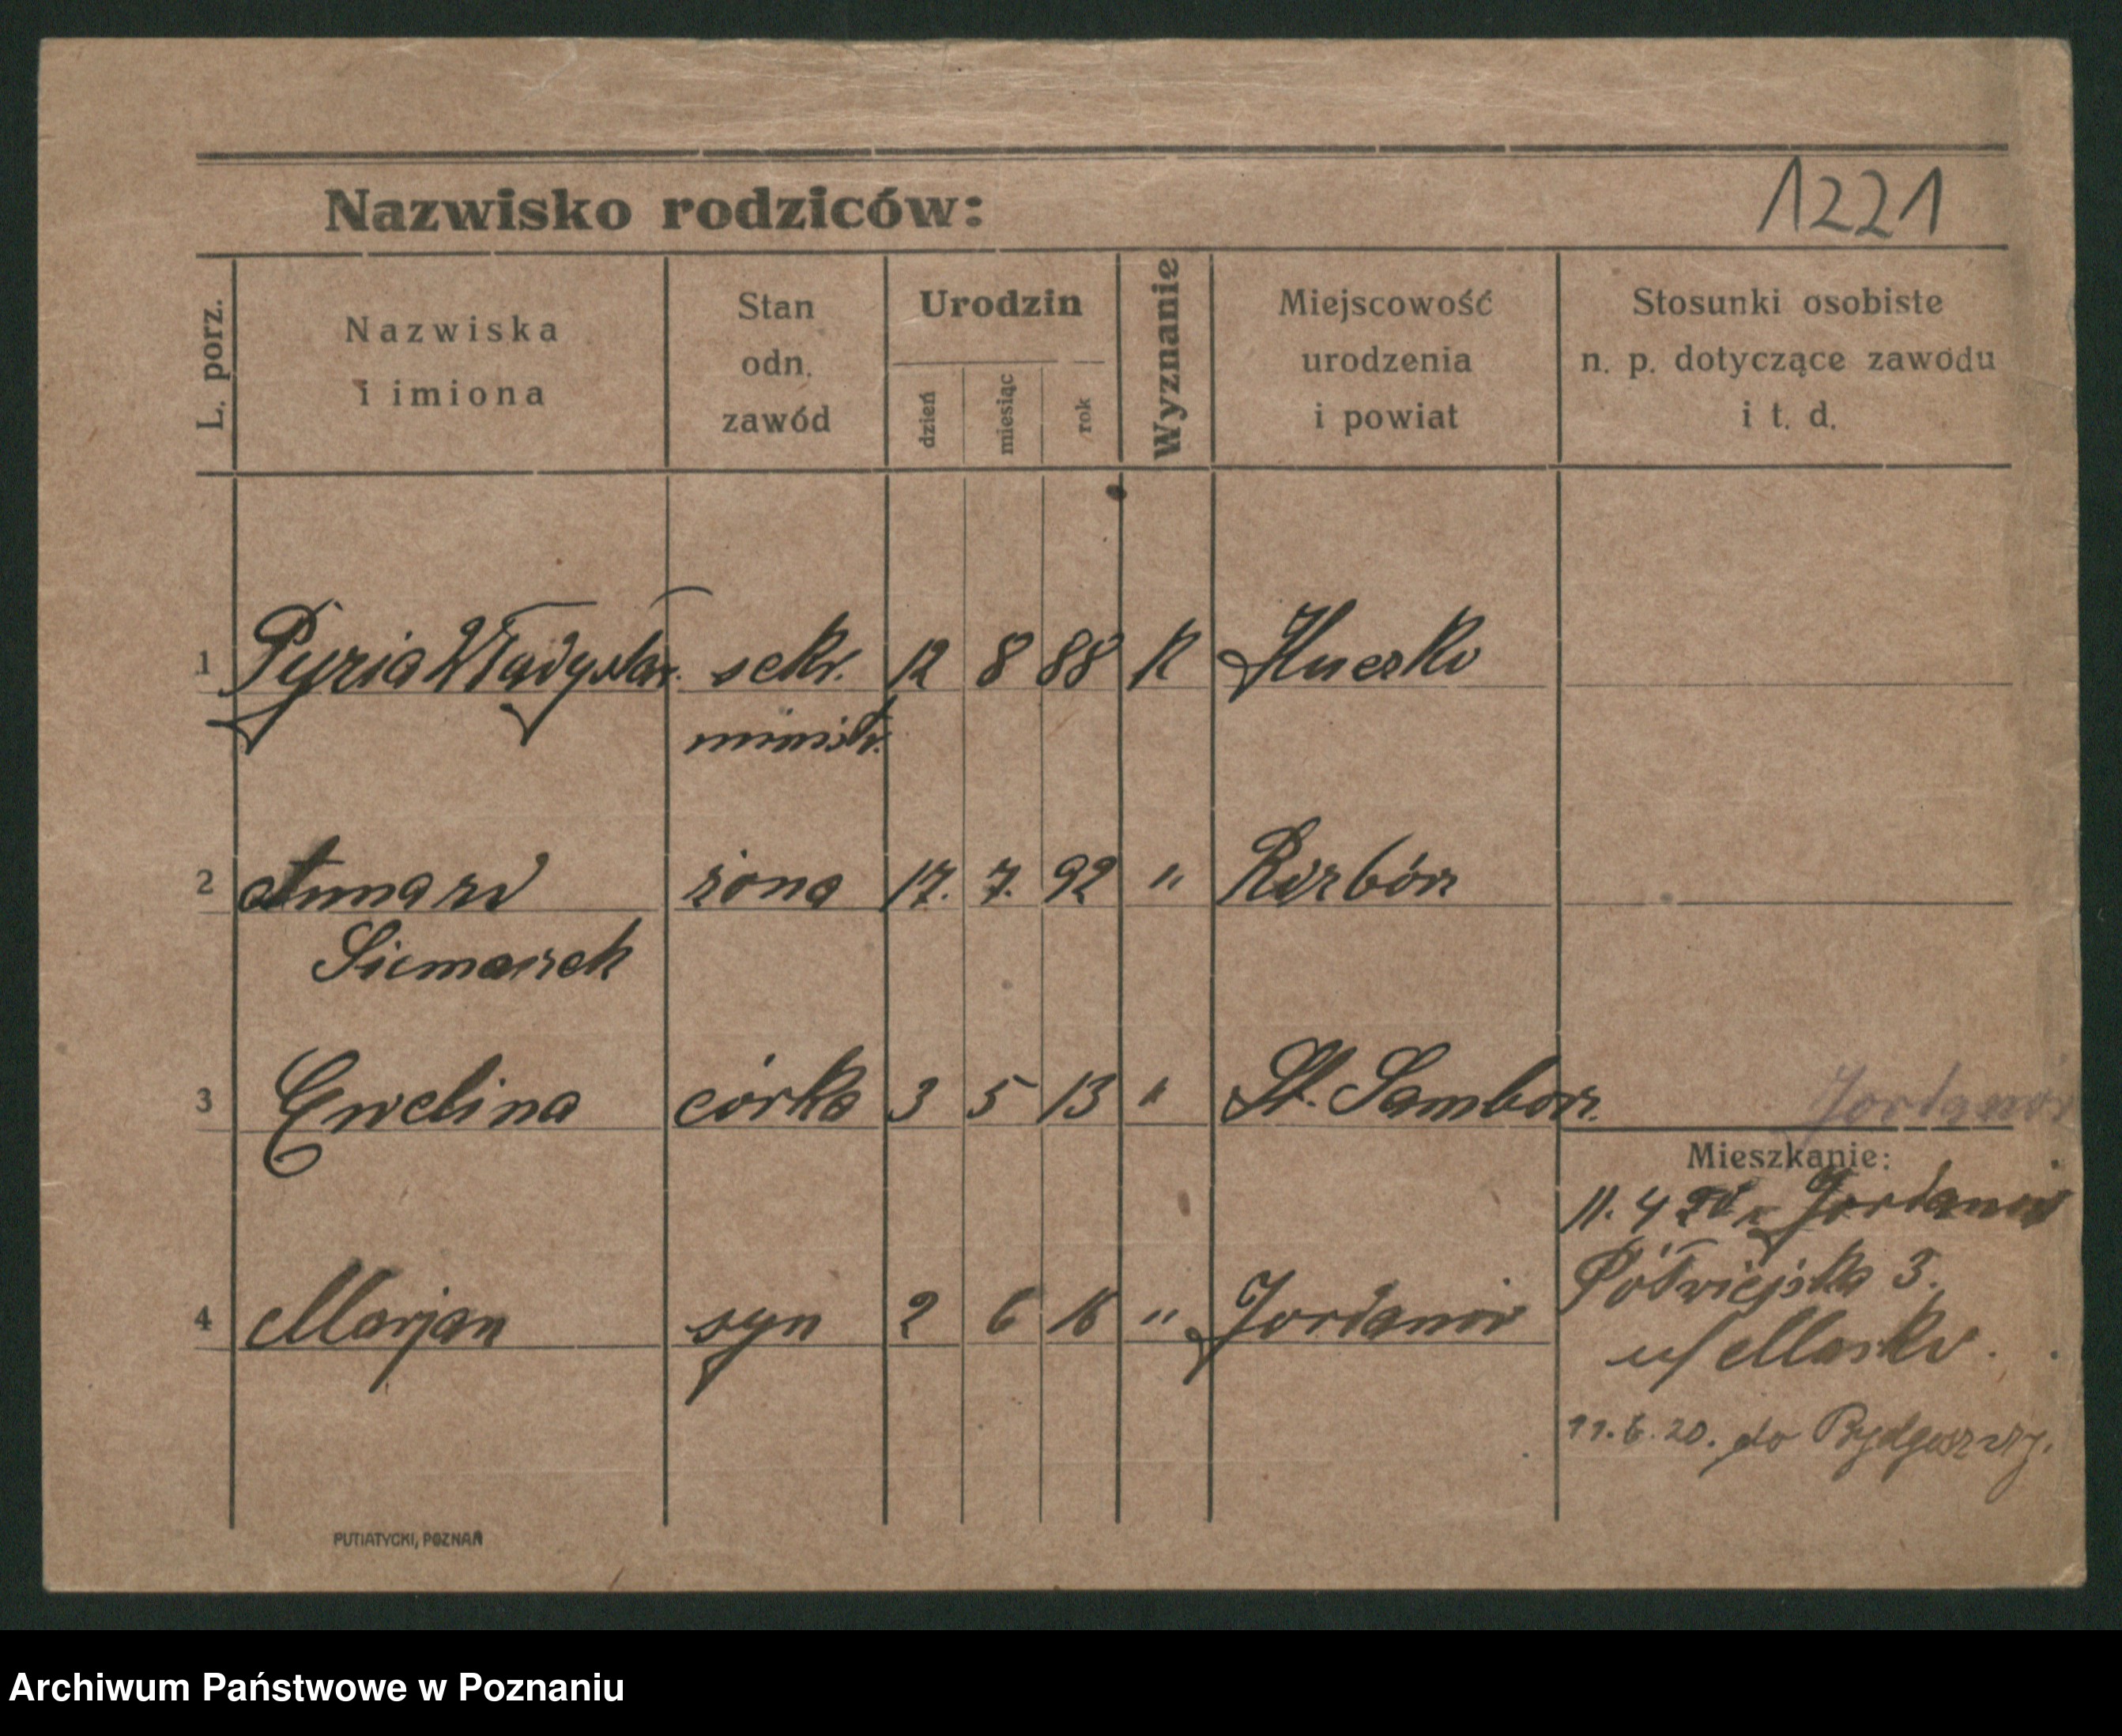 1221
Nazwisko rodziców:
L. porz.
Nazwiska
i imiona
Stan
odn.
zawód
Urodzin
dzień
miesiąc
rok
Wyznanie
Miejscowość
urodzenia
i powiat
Stosunki osobiste
n. p. dotyczące zawodu
i t. d.
1 Pyzia Władysław. sekr. 12 8 88 K
ministr.
2 Anna żona 17. 7. 92 "
3 Ewelina córka 3 5 13 " St. Sambor.
Jordanów
Mieszkanie:
11. 4 Jordanów
Półwiejska 3.
4 Marjan syn 2 6 16 " Jordanów
u/
11.6.20. do Bydgoszczy.
PUTIATYCKI, POZNAŃ
Archiwum Państwowe w Poznaniu